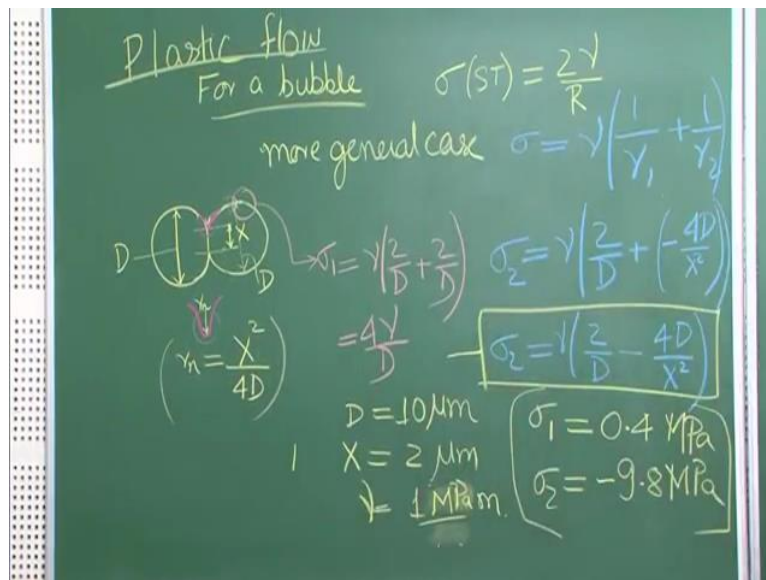 Plastic flow
For a bubble
σ(ST) = 2γ/R
more general case σ = γ(1/γ₁ + 1/γ₂)
D X D
σ₁ = γ(2/D + 2/D)
= 4γ/D
σ₂ = γ(2/D + (-4D/X²))
γn
(γn = X²/4D)
σ₂ = γ(2/D - 4D/X²)
D = 10 μm
X = 2 μm
γ = 1 MPa m.
σ₁ = 0.4 MPa
σ₂ = -9.8 MPa